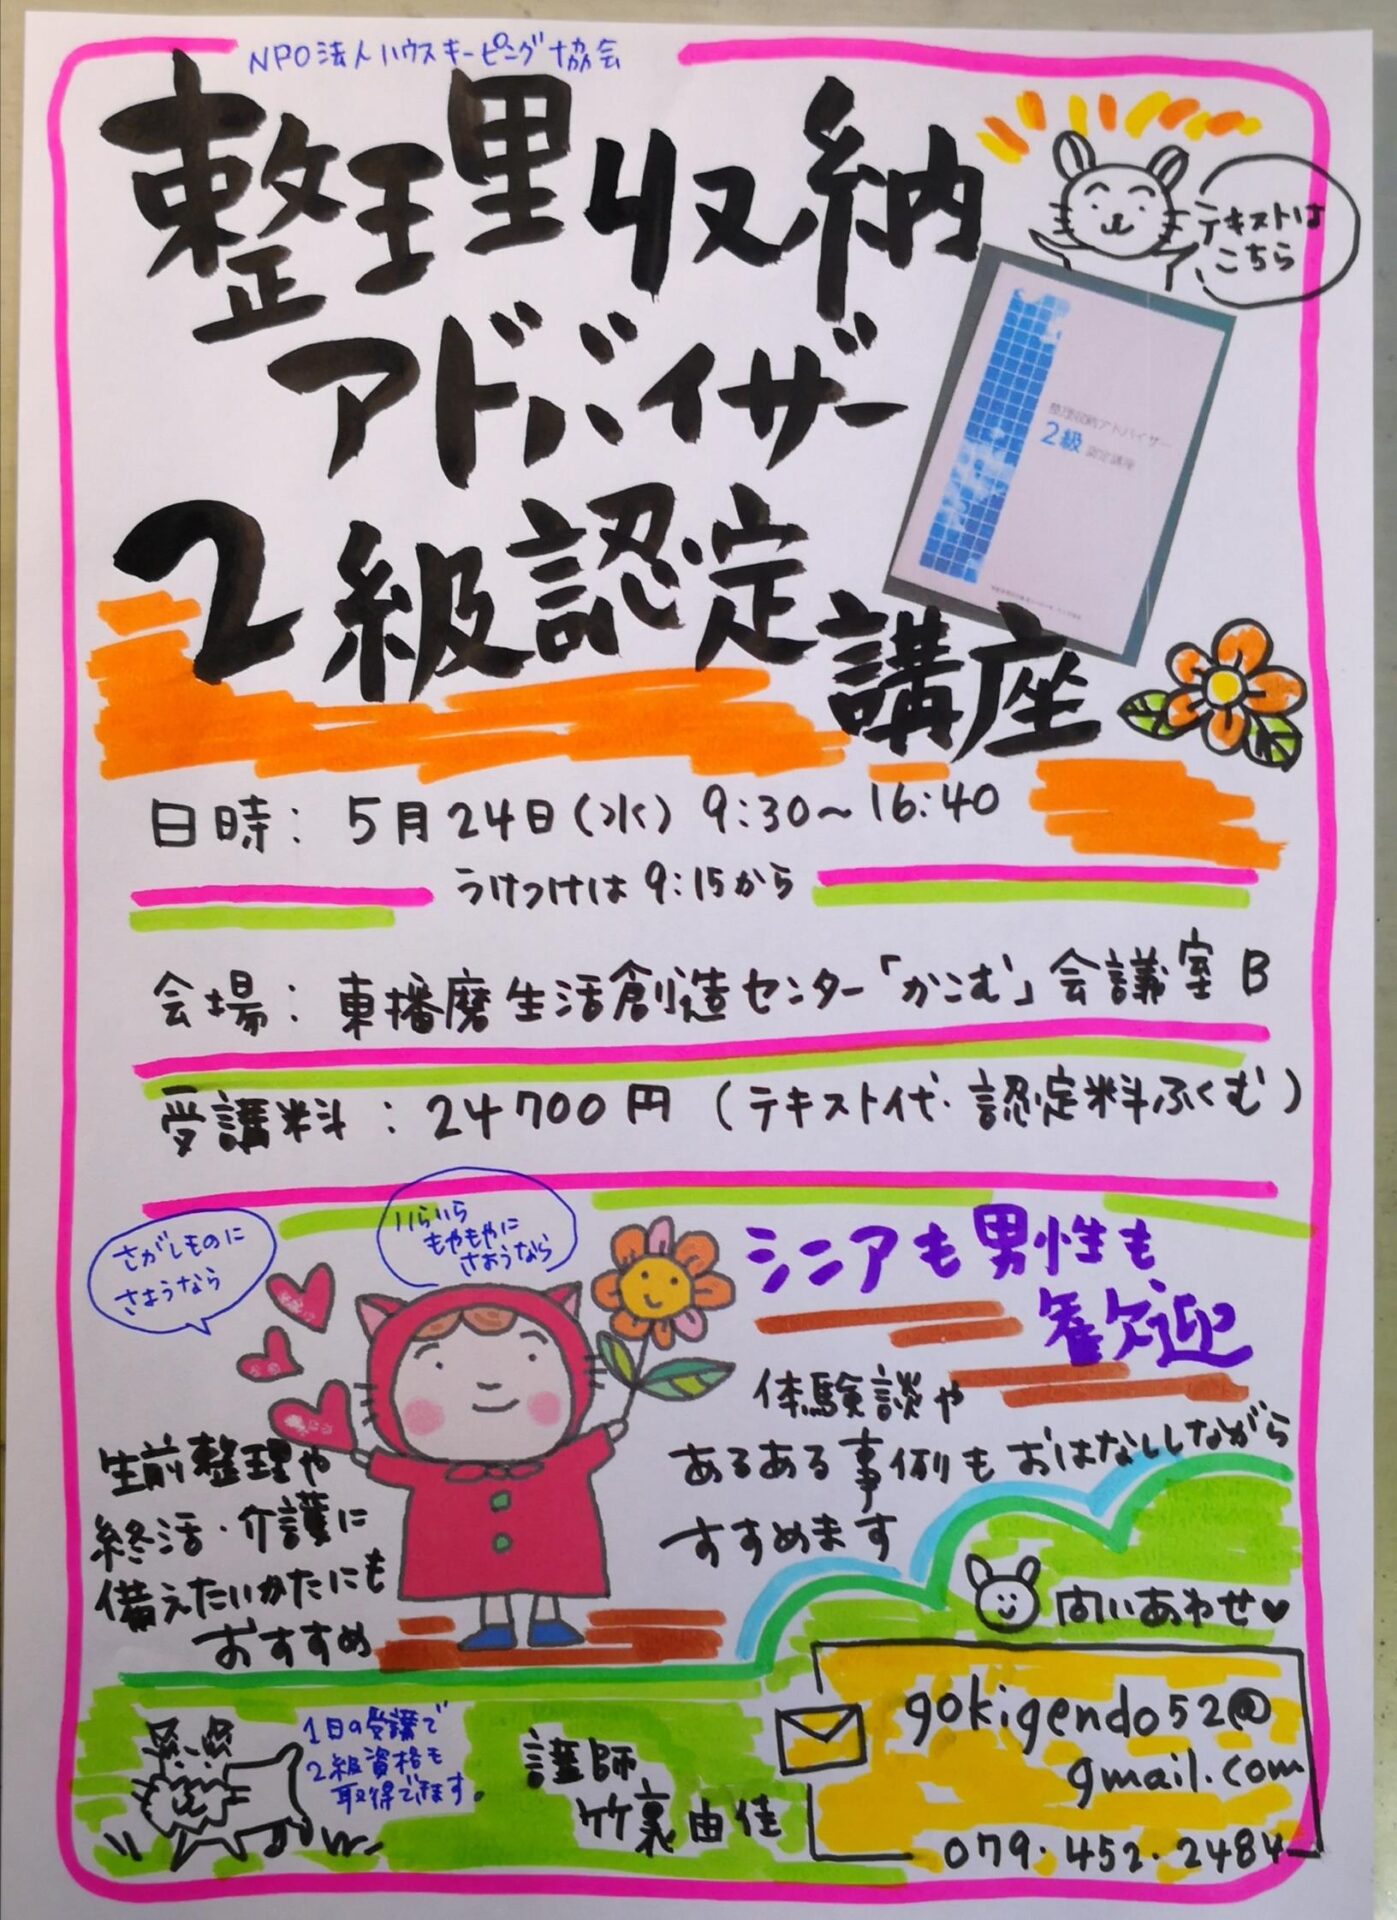 NPO法人ハウスキーピング協会
整理収納
アドバイザー
2級認定
講座
テキストは
こちら
整理収納アドバイザー
2級 認定講座
日時：5月24日(水) 9:30～16:40
うけつけは 9:15から
会場：東播磨生活創造センター「かこむ」会議室 B
受講料：24700円（テキスト代・認定料ふくむ）
さがしものに
さようなら
いらいら
もやもやに
さようなら
シニアも男性も
歓迎
体験談や
あるある事例もおはなししながら
すすめます
生前整理や
終活・介護に
備えたいかたにも
おすすめ
問いあわせ♥
gokigendo52@
gmail.com
079・452・2484
1日の受講で
2級資格も
取得できます。
講師
竹裏由佳